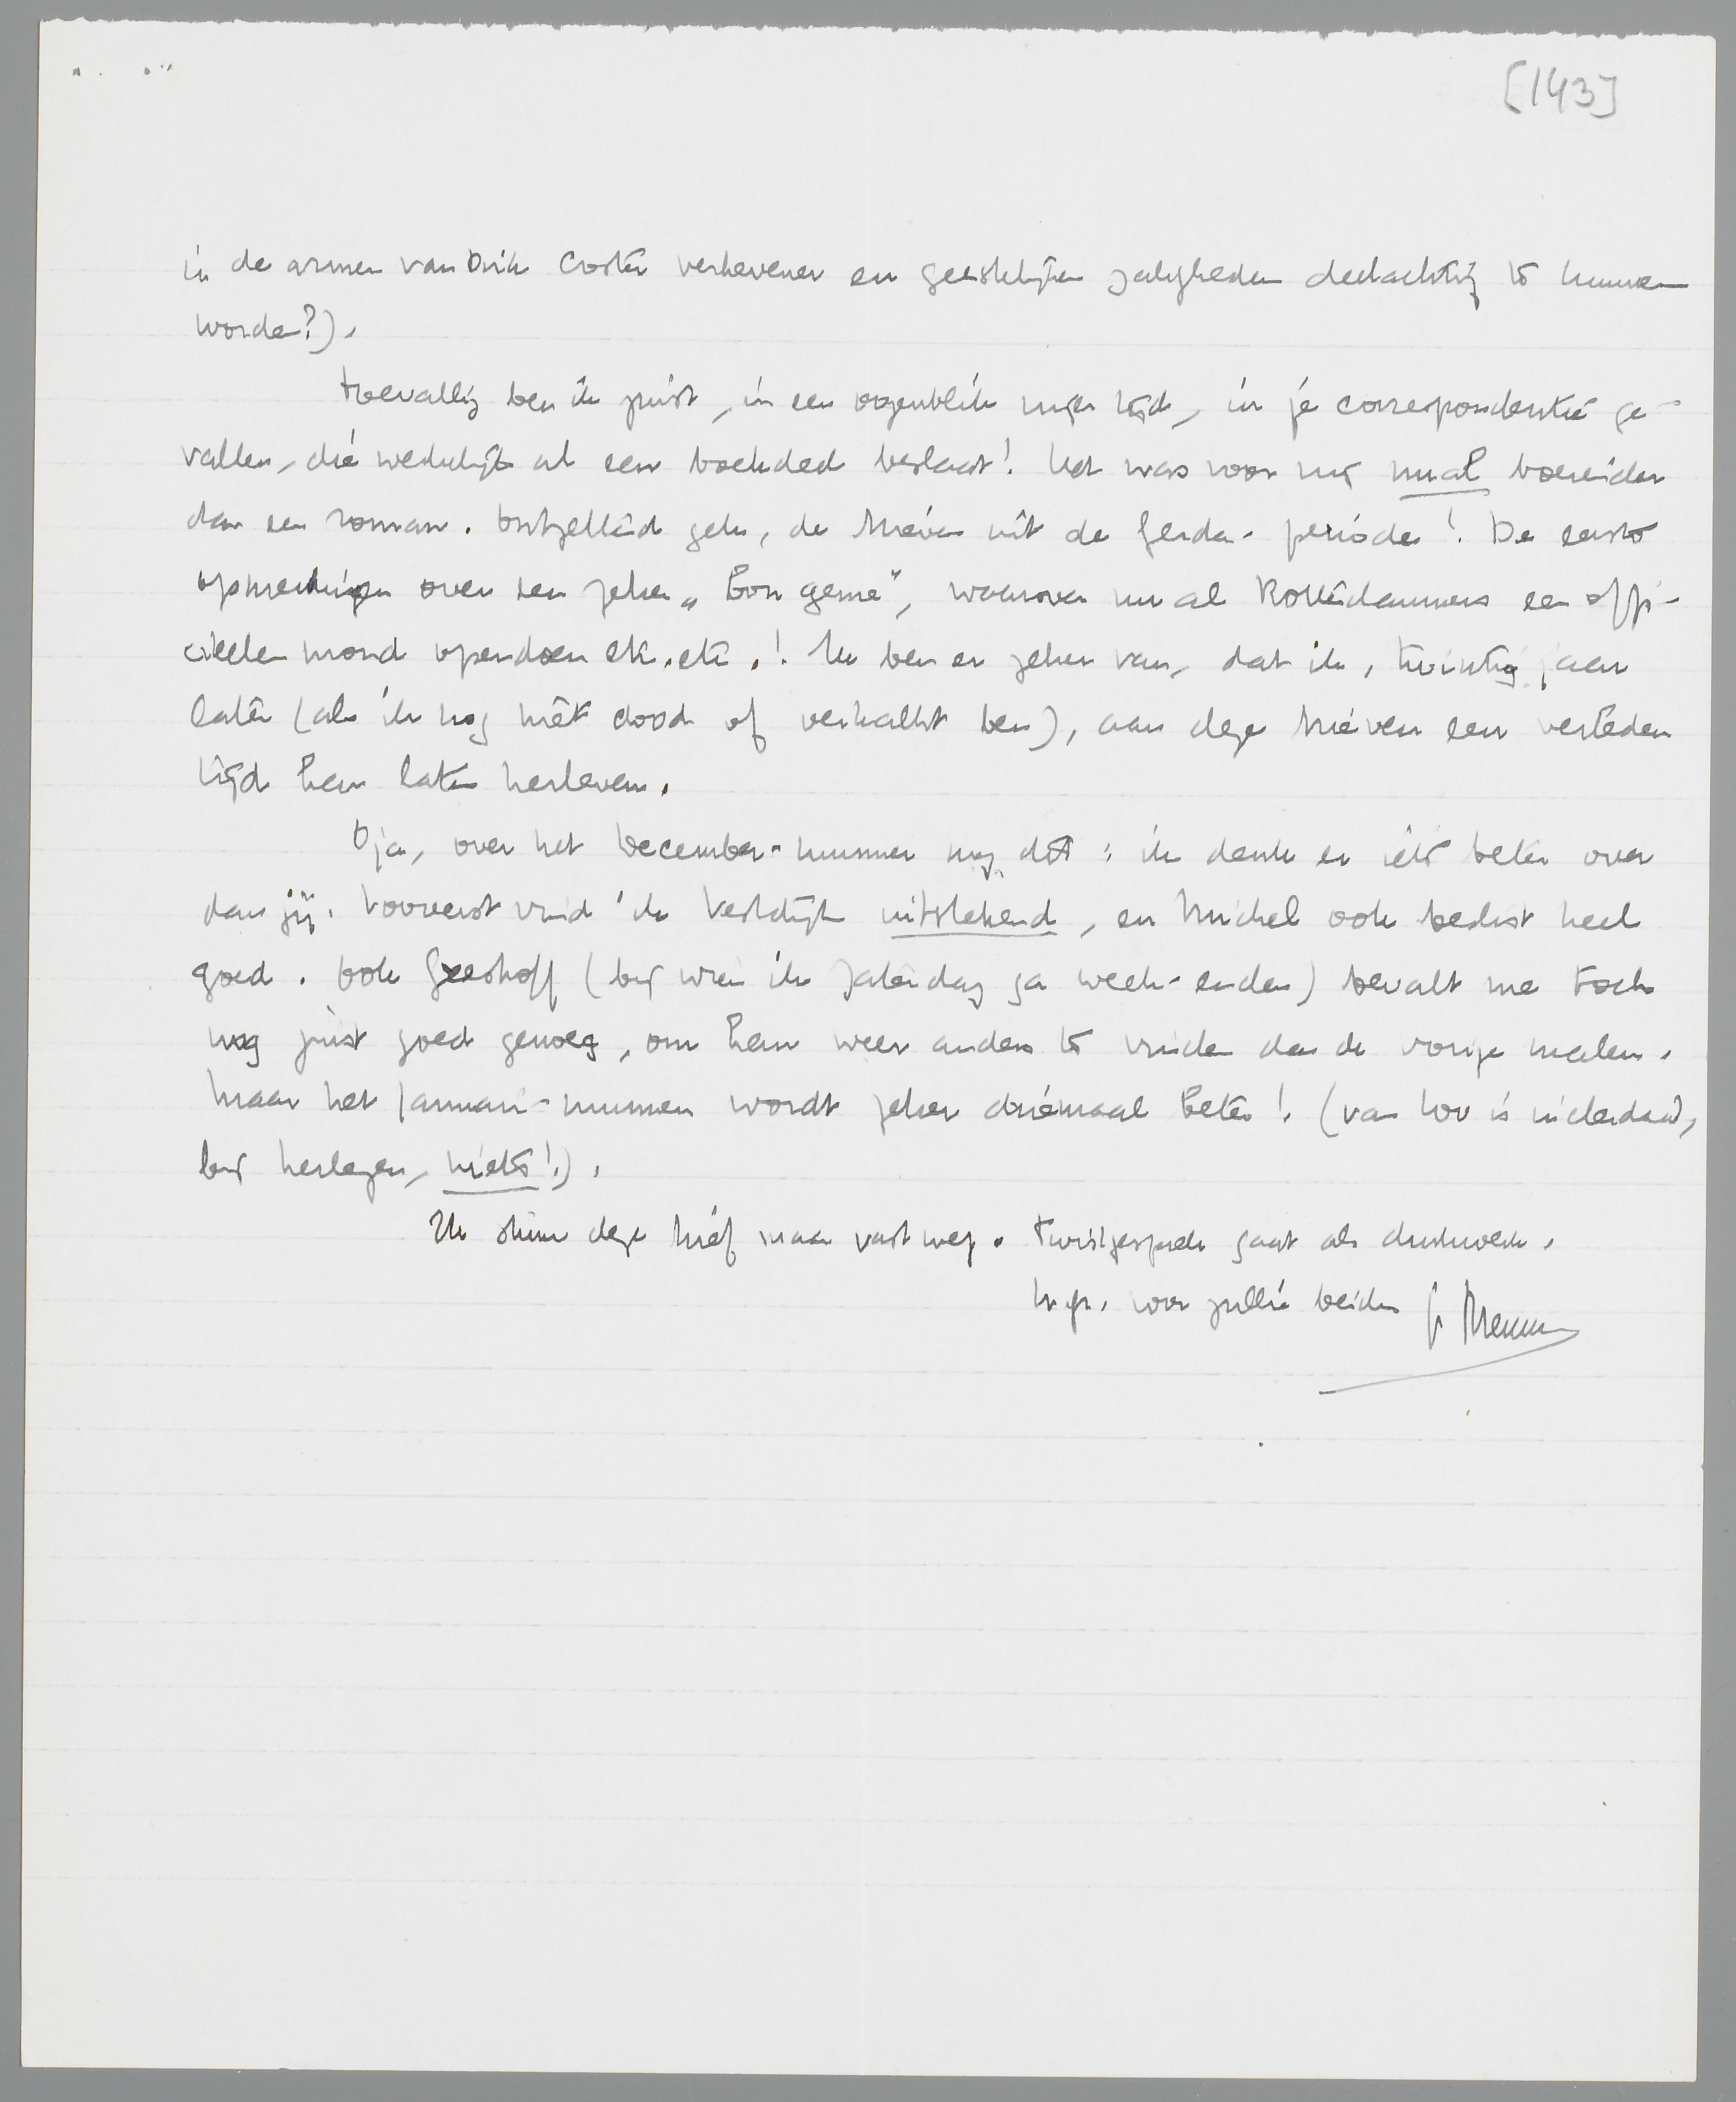 [143]
in de armen van Dirk Coster verhevener en geestelijker zaligheden deelachtig te kunnen
worden?).
Toevallig ben ik juist, in een oogenblik vrijen tijd, in je correspondentie ge-
vallen, die werkelijk al een boekdeel beslaat! Het was voor mij nu al boeiender
dan een roman. Ontzettend gek, de brieven uit de Gerda-periode! De eerste
opmerkingen over een zeker „Bon genre”, waarover nu al Rotterdammers een offi-
cieelen mond opendoen etc. etc.! Ik ben er zeker van, dat ik, twintig jaar
later (als ik nog niet dood of verkalkt ben), aan deze brieven een verleden
tijd kan laten herleven.
O ja, over het December-nummer nog dit: ik denk er iets beter over
dan jij. Vooreerst vind ik Vestdijk uitstekend, en Michel ook beslist heel
goed. Ook Greshoff (bij wien ik Zaterdag ga week-enden) bevalt me toch
nog juist goed genoeg, om hem weer anders te vinden dan de vorige malen.
Maar het Januari-nummer wordt zeker driemaal beter! (van Wou is inderdaad,
bij herlezen, niets!).
Ik stuur deze brief maar vast weg. Twistgesprek gaat als drukwerk.
h. gr. voor jullie beiden je Menno